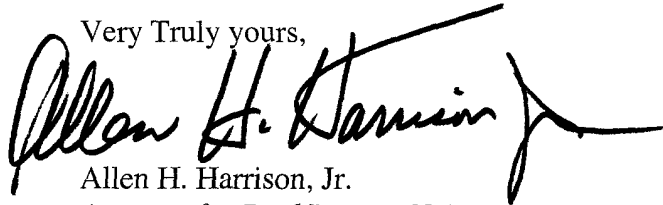 Very Truly yours,
Allen H. Harrison Jr
Allen H. Harrison, Jr.